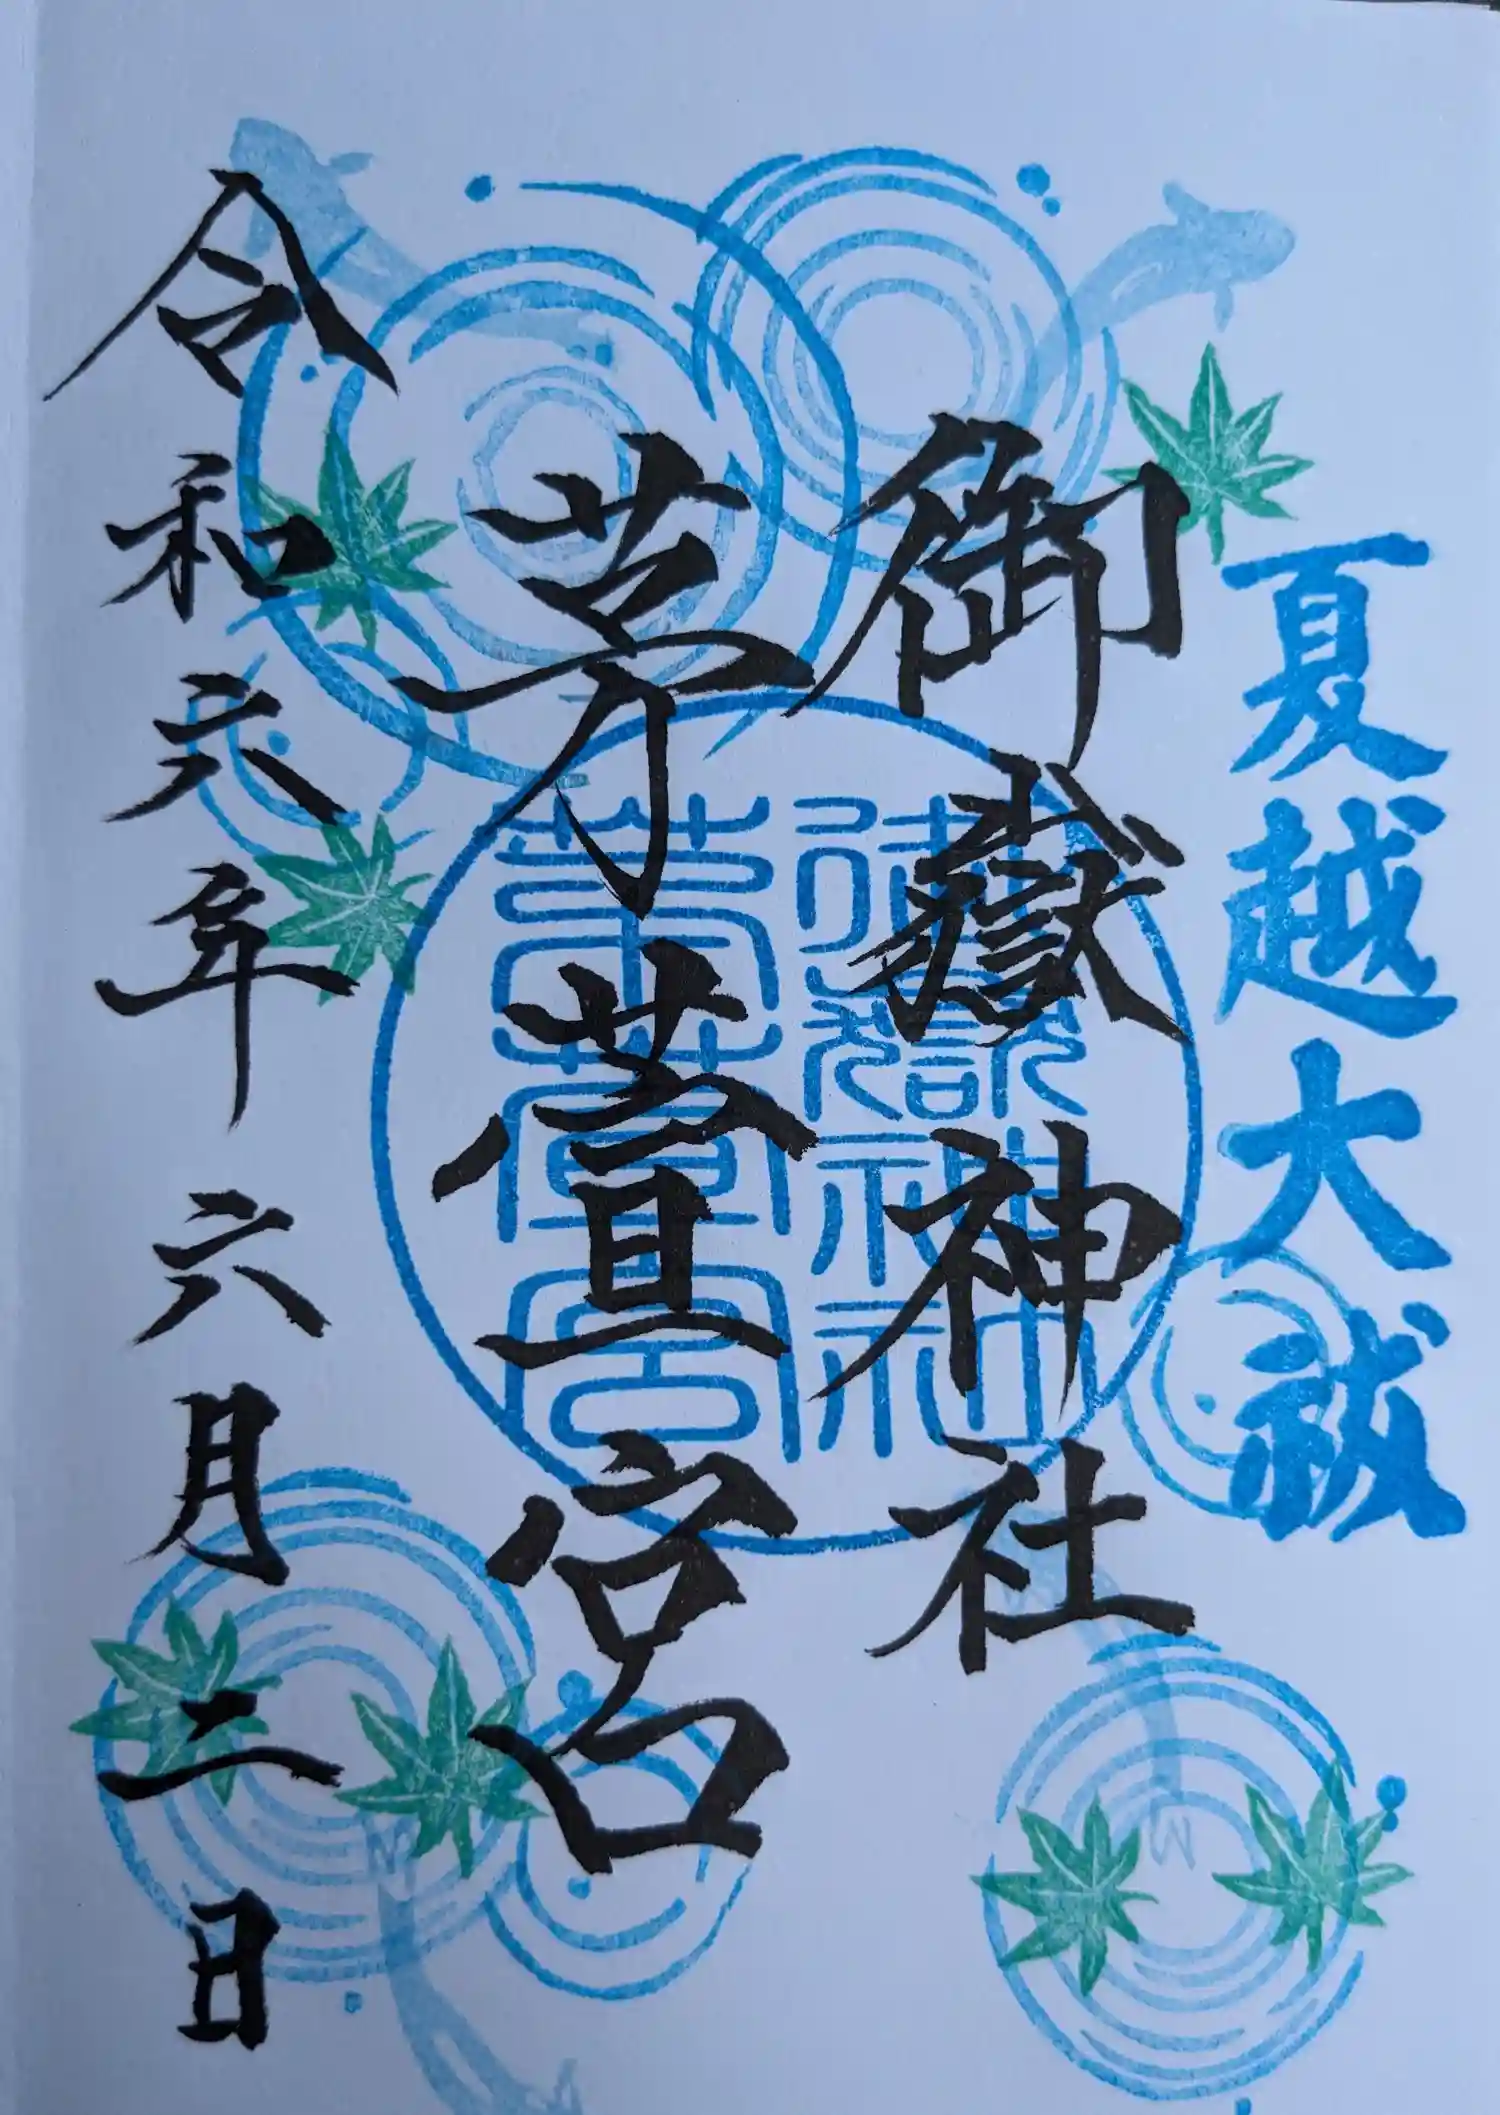 夏越大祓
御嶽神社
茅萱宮
御嶽神社
茅萱宮
令和六年六月二日